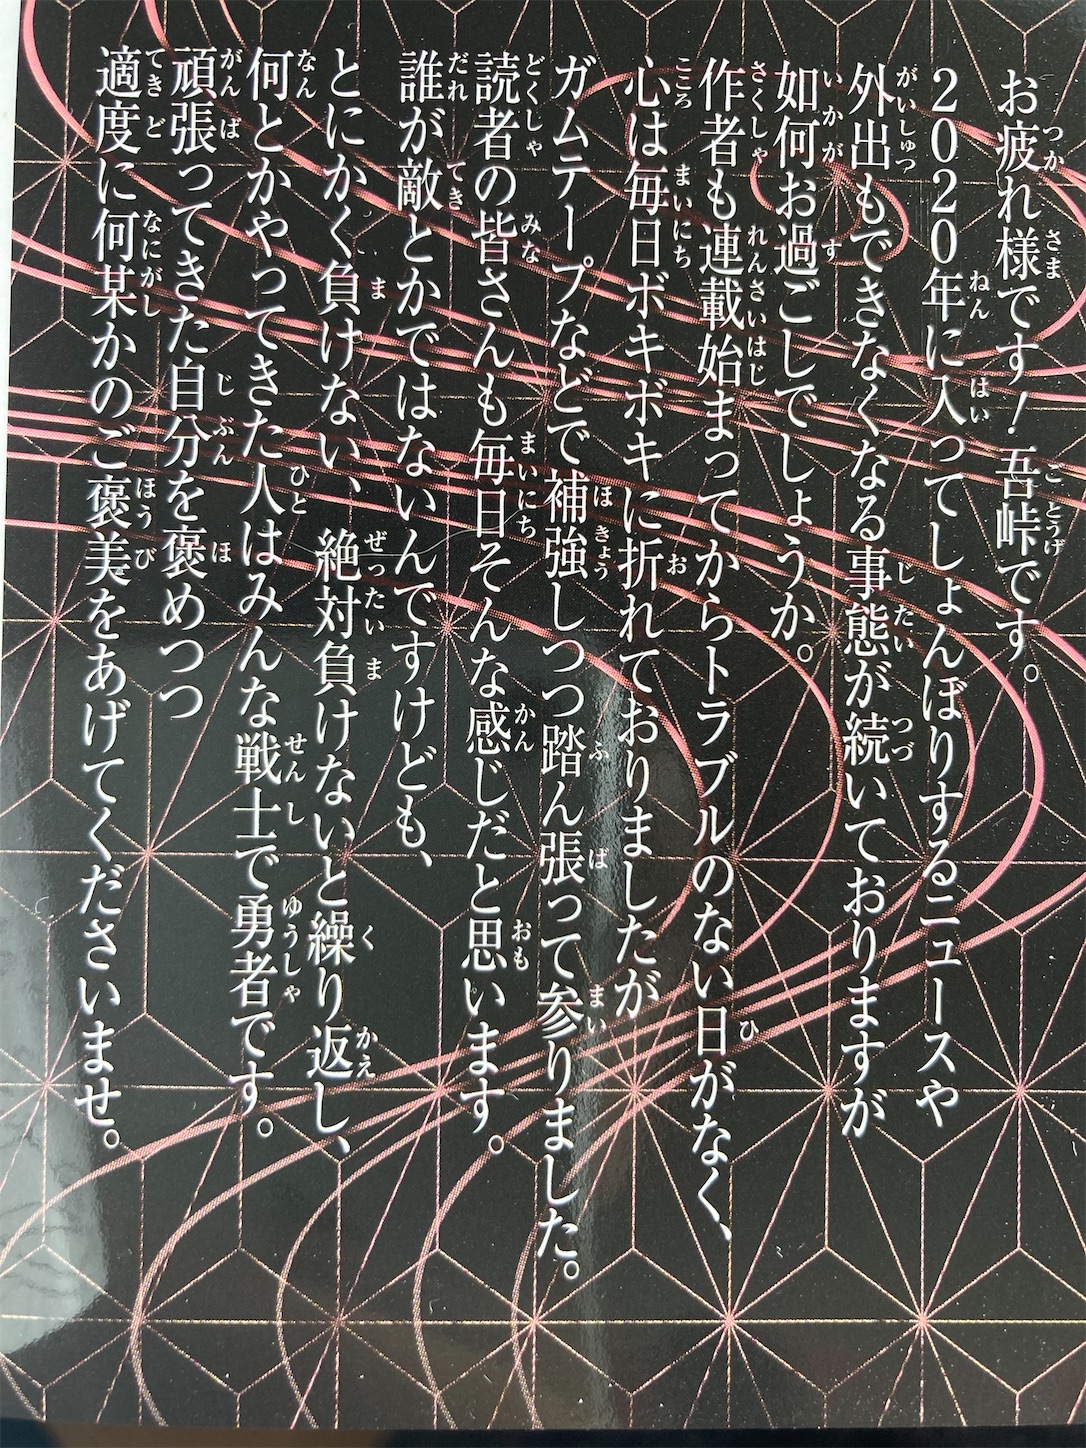 お疲れ様です！吾峠です。
2020年に入ってしょんぼりするニュースや
外出もできなくなる事態が続いておりますが
如何お過ごしでしょうか。
作者も連載始まってからトラブルのない日がなく、
心は毎日ボキボキに折れておりましたが
ガムテープなどで補強しつつ踏ん張って参りました。
読者の皆さんも毎日そんな感じだと思います。
誰が敵とかではないんですけども、
とにかく負けない、絶対負けないと繰り返し、
何とかやってきた人はみんな戦士で勇者です。
頑張ってきた自分を褒めつつ
適度に何某かのご褒美をあげてくださいませ。